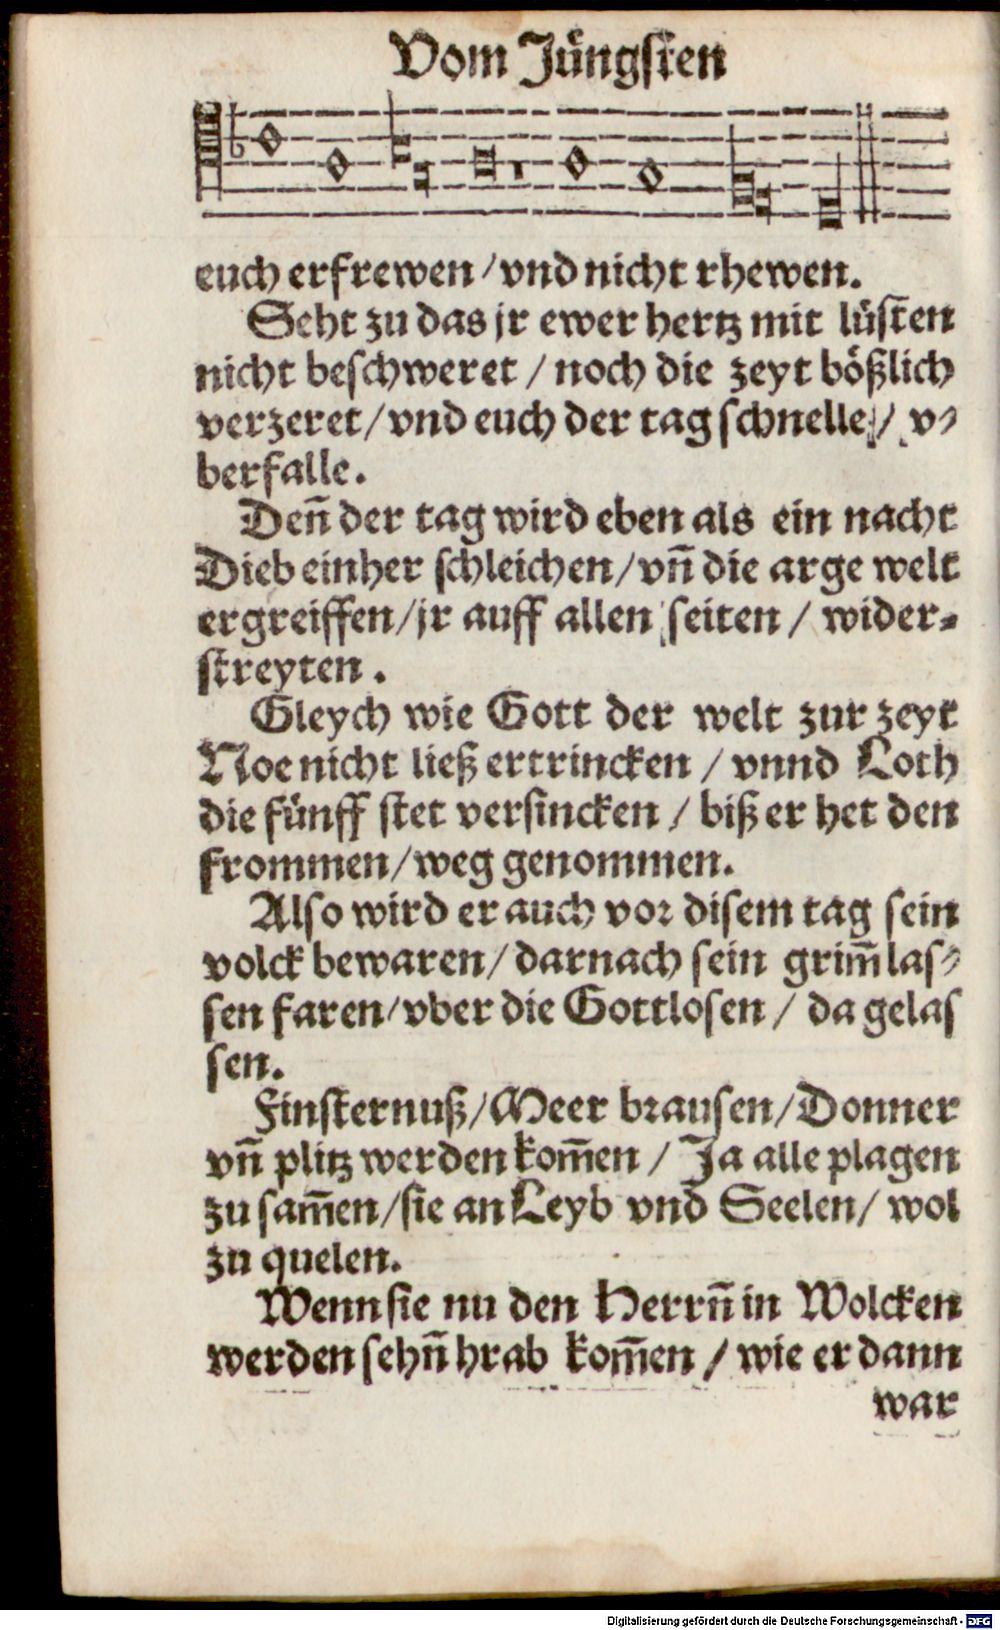 Vom Jüngsten
euch erfrewen / vnd nicht rhewen.
Seht zu das jr ewer hertz mit lüsten
nicht beschweret / noch die zeyt bößlich
verzeret / vnd euch der tag schnelle / v⸗
berfalle.
Deñ der tag wird eben als ein nacht
Dieb einher schleichen / vñ die arge welt
ergreiffen / jr auff allen seiten / wider⸗
streyten.
Gleych wie Gott der welt zur zeyt
Noe nicht ließ ertrincken / vnnd Loth
die fünff stet versincken / biß er het den
frommen / weg genommen.
Also wird er auch vor disem tag sein
volck bewaren / darnach sein grim̄ las⸗
sen faren / vber die Gottlosen / da gelas
sen.
Finsternuß / Meer brausen / Donner
vñ plitz werden kom̄en / Ja alle plagen
zu sam̄en / sie an Leyb vnd Seelen / wol
zu quelen.
Wenn sie nu den Herrñ in Wolcken
werden sehñ hrab kom̄en / wie er dann
war
Digitalisierung gefördert durch die Deutsche Forschungsgemeinschaft - DFG